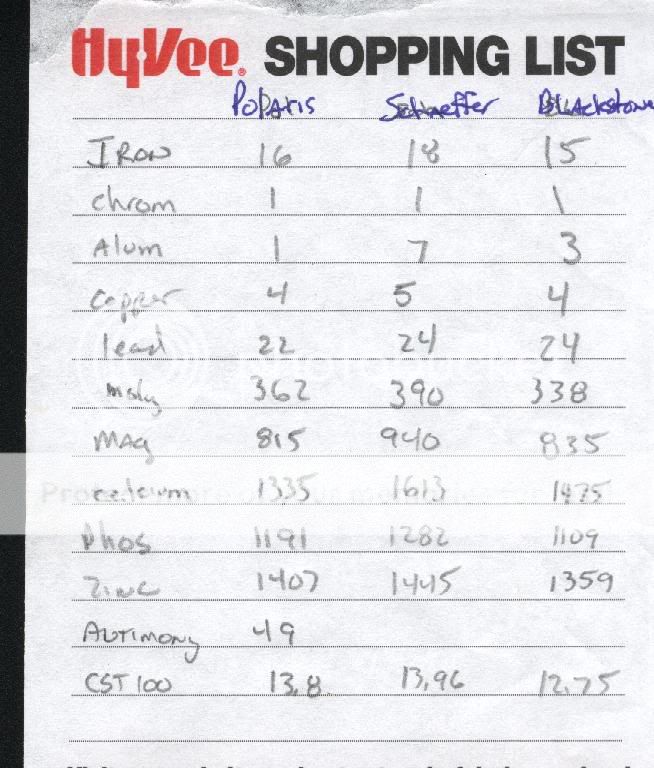 HyVee SHOPPING LIST
Polaris Schaeffer Blackstone
Iron 16 18 15
chrom 1 1 1
Alum 1 7 3
Copper 4 5 4
lead 22 24 24
moly 362 390 338
MAg 815 940 835
calcium 1335 1613 1475
Phos 1191 1282 1109
Zinc 1407 1445 1359
Autimony 49
CST 100 13.8 13.96 12.75